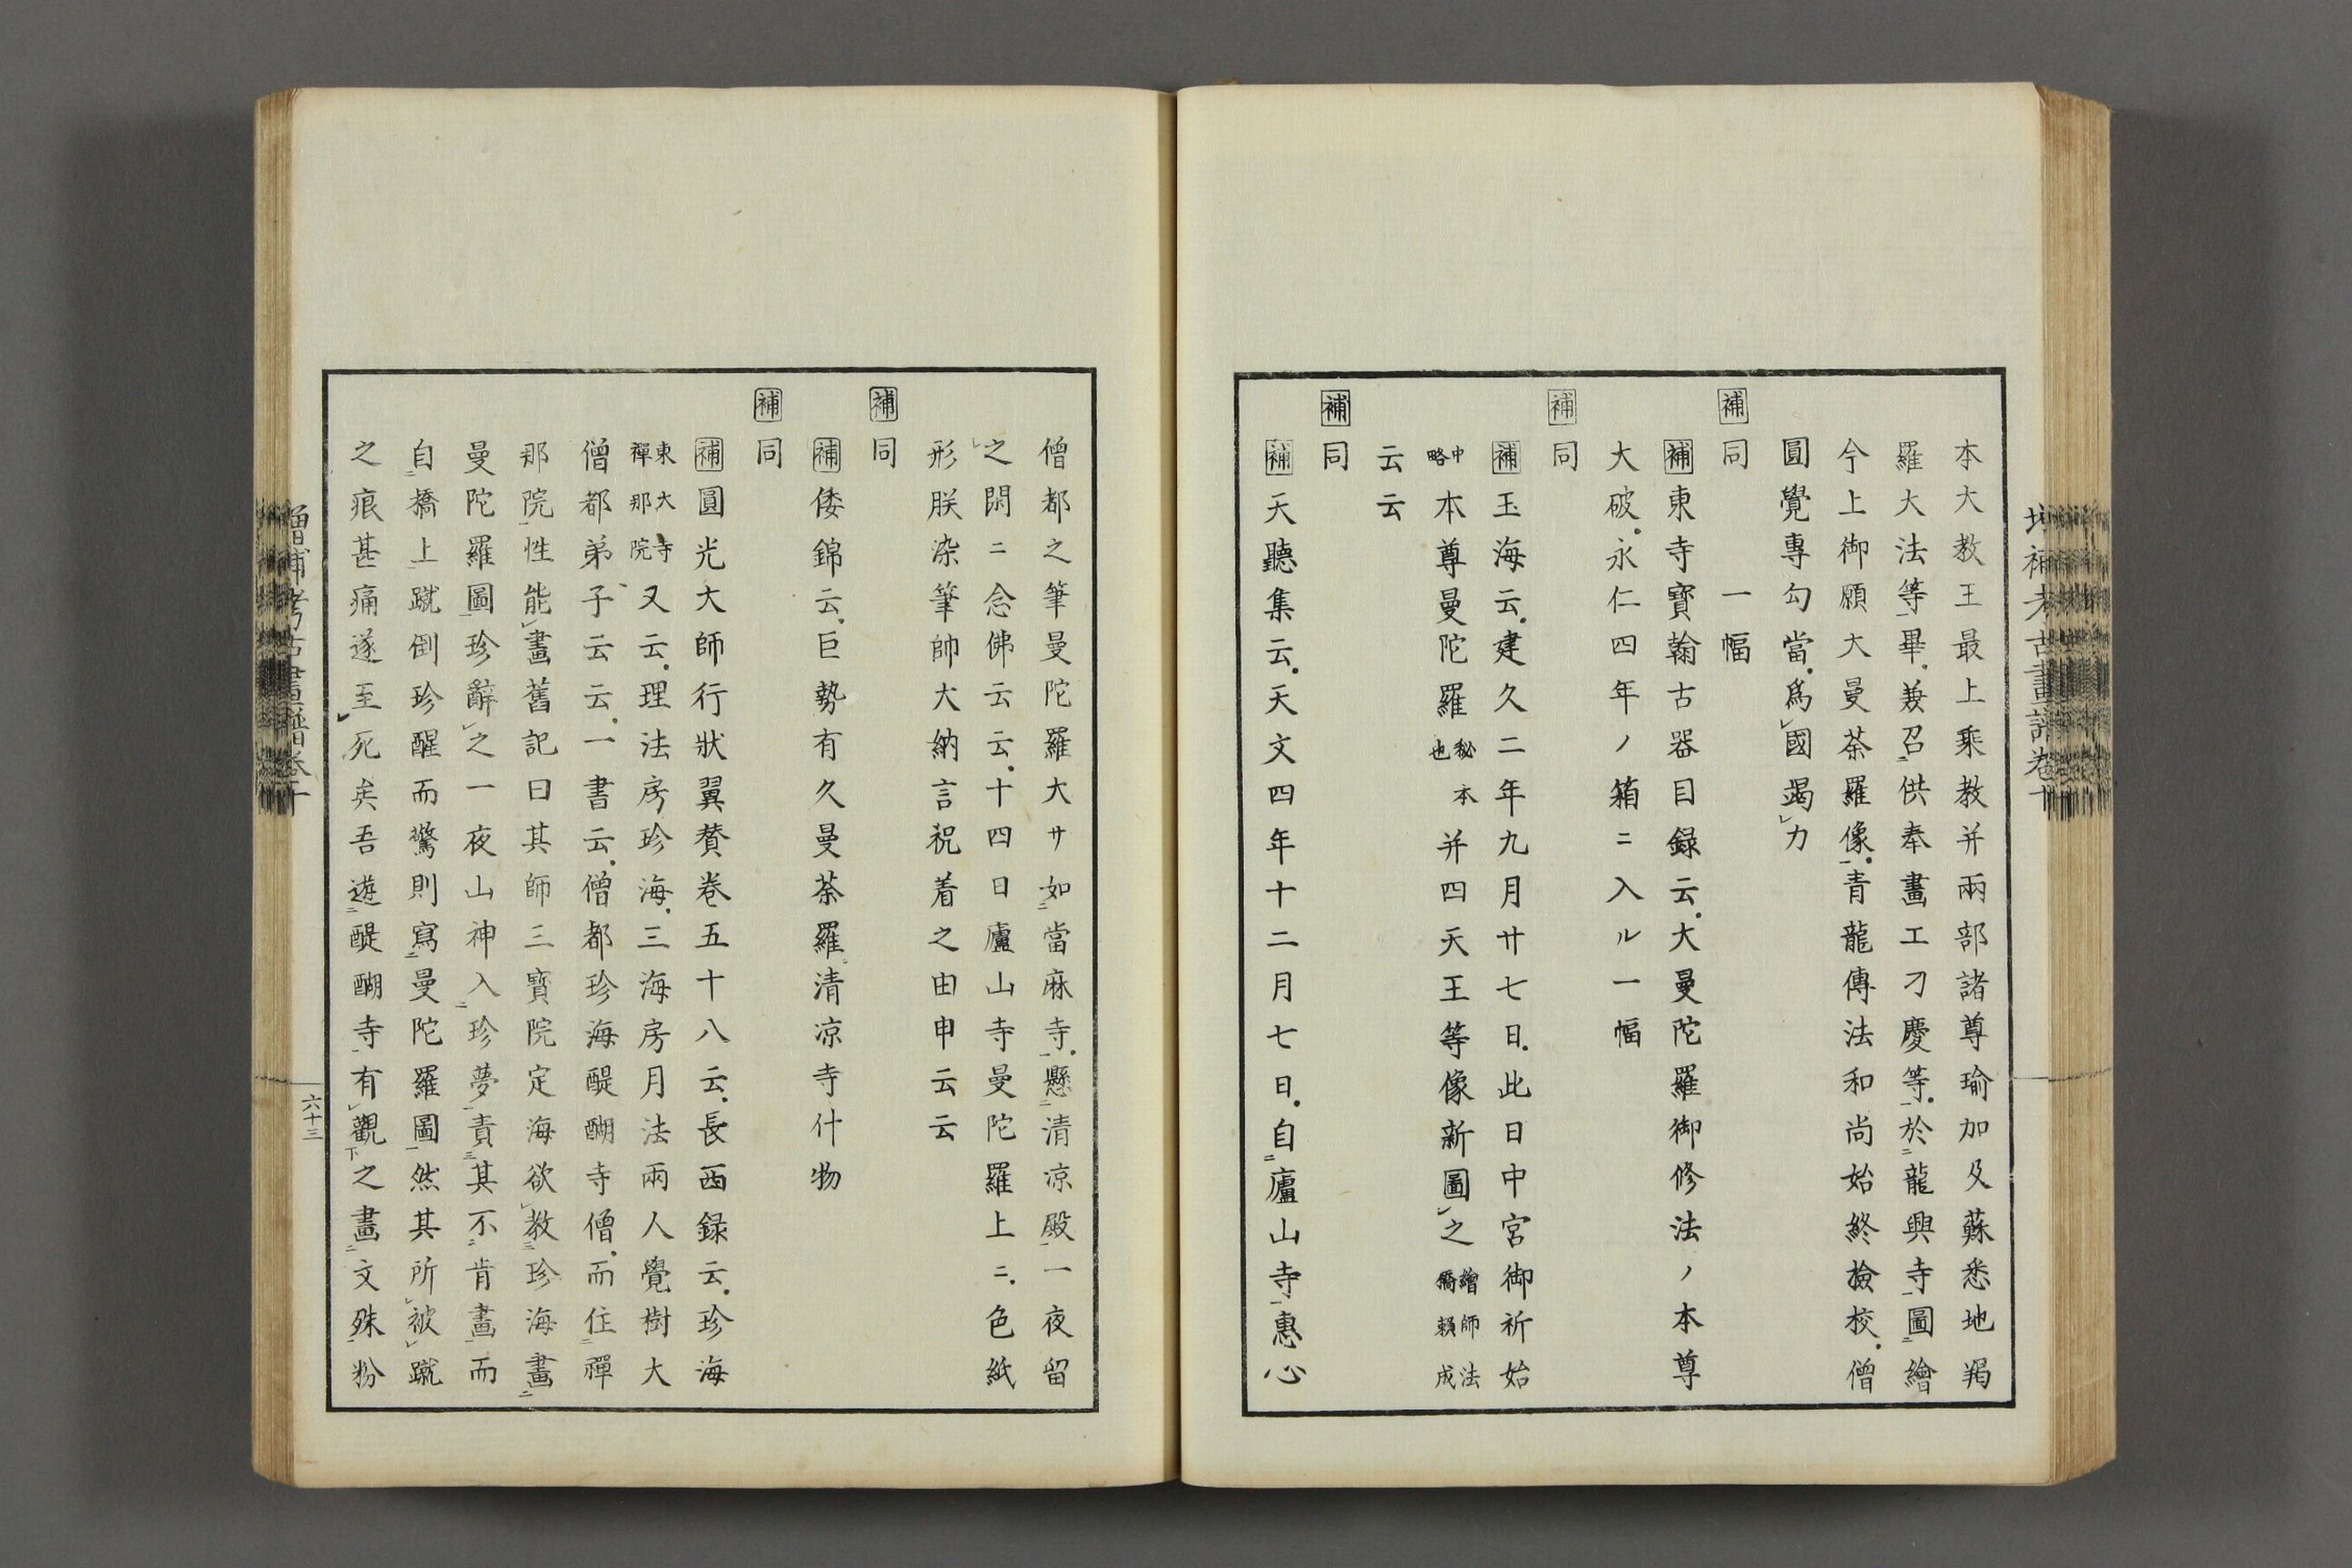 本大教王最上乘教并兩部諸尊瑜加及蘇悉地羯
羅大法等畢、兼召供奉畫工刁慶等、於龍興寺圖繪
今上御願大曼荼羅像、青龍傳法和尚始終撿校、僧
圓覺專勾當、爲國竭力
補同　一幅
補東寺寶翰古器目録云、大曼陀羅御修法ノ本尊
大破、永仁四年ノ箱ニ入ル一幅
補同
補玉海云、建久二年九月廿七日、此日中宮御祈始
中略本尊曼陀羅秘本也并四天王等像新圖之繪師法橋賴成
云云
補同
補天聽集云、天文四年十二月七日、自廬山寺惠心
僧都之筆曼陀羅大サ如當麻寺、懸清凉殿一夜留
之閑ニ念佛云云、十四日廬山寺曼陀羅上ニ、色紙
形朕染筆帥大納言祝着之由申云云
補同
補倭錦云、巨勢有久曼荼羅、清凉寺什物
補同
補圓光大師行狀翼賛卷五十八云、長西録云、珍海
東大寺禪那院又云、理法房珍海、三海房月法兩人覺樹大
僧都弟子云云、一書云、僧都珍海醍醐寺僧、而住禪
那院性能畫舊記曰其師三寳院定海欲教珍海畫
曼陀羅圖珍辭之一夜山神入珍夢責其不肯畫而
自橋上蹴倒珍醒而驚則寫曼陀羅圖然其所被蹴
之痕甚痛遂至死矣吾遊醍醐寺有觀之畫文殊粉
增補考古畫譜卷十
六十三